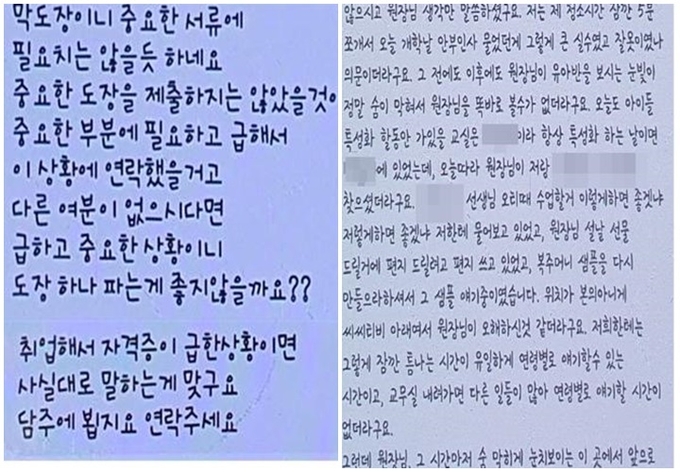 막도장이니 중요한 서류에
필요치는 않을듯 하네요
중요한 도장을 제출하지는 않았을것이
중요한 부분에 필요하고 급해서
이 상황에 연락했을거고
다른 여분이 없으시다면
급하고 중요한 상황이니
도장 하나 파는게 좋지않을까요??
취업해서 자격증이 급한상황이면
사실대로 말하는게 맞구요
담주에 뵙지요 연락주세요
않으시고 원장님 생각만 말씀하셨구요. 저는 제 청소시간 잠깐 5분
쪼개서 오늘 개학날 안부인사 물었던게 그렇게 큰 실수였고 잘못이였나
의문이더라구요. 그 전에도 이후에도 원장님이 유아반을 보시는 눈빛이
정말 숨이 막혀서 원장님을 똑바로 볼수가 없더라구요. 오늘도 아이들
특성화 할동안 가있을 교실은 이라 항상 특성화 하는 날이면
에 있었는데, 오늘따라 원장님이 저랑
찾으셨더라구요. 선생님 오티때 수업할거 이렇게하면 좋겠냐
저렇게하면 좋겠냐 저한테 물어보고 있었고, 원장님 설날 선물
드릴거에 편지 드릴려고 편지 쓰고 있었고, 복주머니 샘플을 다시
만들으라하셔서 그 샘플 얘기중이였습니다. 위치가 본의아니게
씨씨티비 아래여서 원장님이 오해하신것 같더라구요. 저희한테는
그렇게 잠깐 틈나는 시간이 유일하게 연령별로 얘기할수 있는
시간이고, 교무실 내려가면 다른 일들이 많아 연령별로 얘기할 시간이
없더라구요.
그런데 원장님, 그 시간마저 숨 막히게 눈치보이는 이 곳에서 앞으로